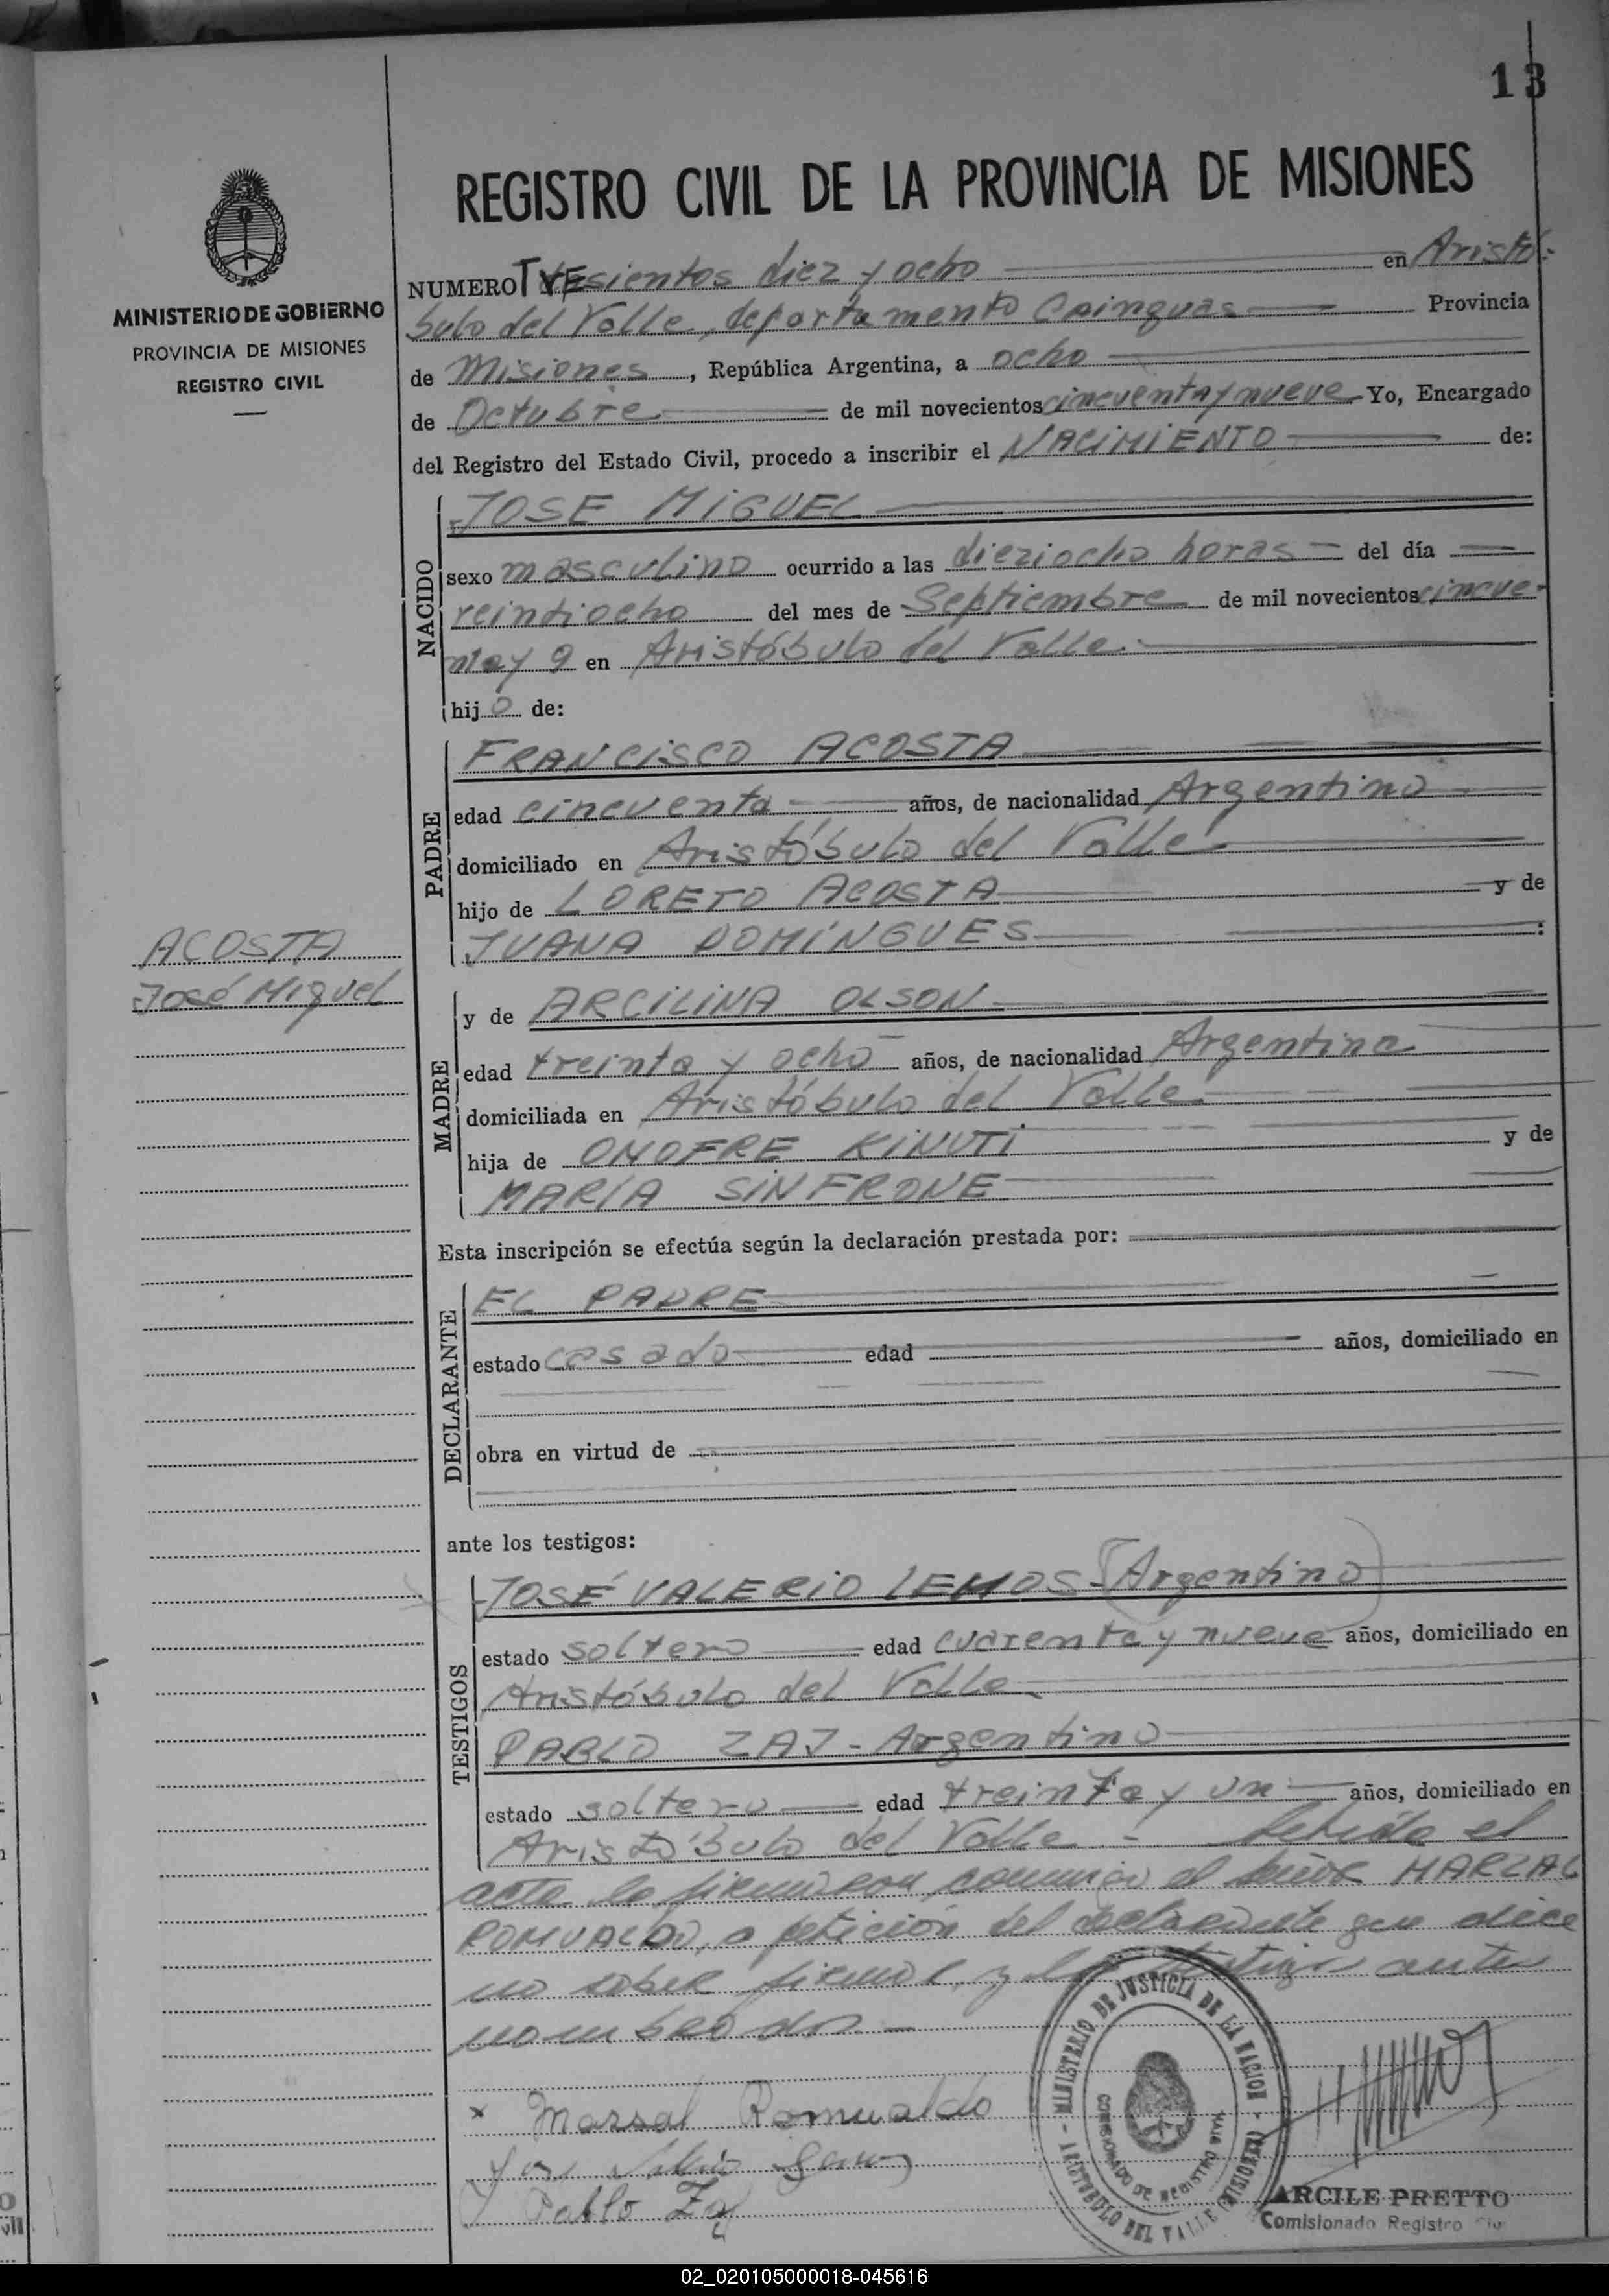 13
REGISTRO CIVIL DE LA PROVINCIA DE MISIONES
MINISTERIO DE GOBIERNO
PROVINCIA DE MISIONES
REGISTRO CIVIL
NUMERO Tresientos diez y ocho en Aristó-
bulo del Valle, departamento Cainguas Provincia
de Misiones, República Argentina, a ocho
de Octubre de mil novecientos cincuenta y nueve Yo, Encargado
del Registro del Estado Civil, procedo a inscribir el NACIMIENTO de:
NACIDO
JOSE MIGUEL
sexo masculino ocurrido a las dieziocho horas del día
veintiocho del mes de Septiembre de mil novecientos cincue-
nta y 9 en Aristóbulo del Valle.
hijo de:
PADRE
FRANCISCO ACOSTA
edad cincuenta años, de nacionalidad Argentino
domiciliado en Aristóbulo del Valle
hijo de LORETO ACOSTA y de
JUANA DOMÍNGUES :
ACOSTA
José Miguel
MADRE
y de ARCILINA OLSON
edad treinta y ocho años, de nacionalidad Argentina
domiciliada en Aristóbulo del Valle
hija de ONOFRE KINUTI y de
MARÍA SINFRONE
Esta inscripción se efectúa según la declaración prestada por:
DECLARANTE
EL PADRE
estado casado edad años, domiciliado en
obra en virtud de
ante los testigos:
TESTIGOS
JOSÉ VALERIO LEMOS - (Argentino)
estado soltero edad cuarenta y nueve años, domiciliado en
Aristóbulo del Valle
PABLO ZAJ - Argentino
estado soltero edad treinta y un años, domiciliado en
Aristóbulo del Valle - el
acta la firmaron conmigo el señor MARZAL
ROMUALDO, a petición del declarante que dice
no saber firmar, y los testigos ante
nombrados.-
x Marsal Romualdo
Pablo Zaj
MINISTERIO DE JUSTICIA DE LA NACION
COMISIONADO DE REGISTRO CIVIL
ARISTOBULO DEL VALLE (MISIONES)
ARCILE PRETTO
Comisionado Registro Civ
02_020105000018-045616